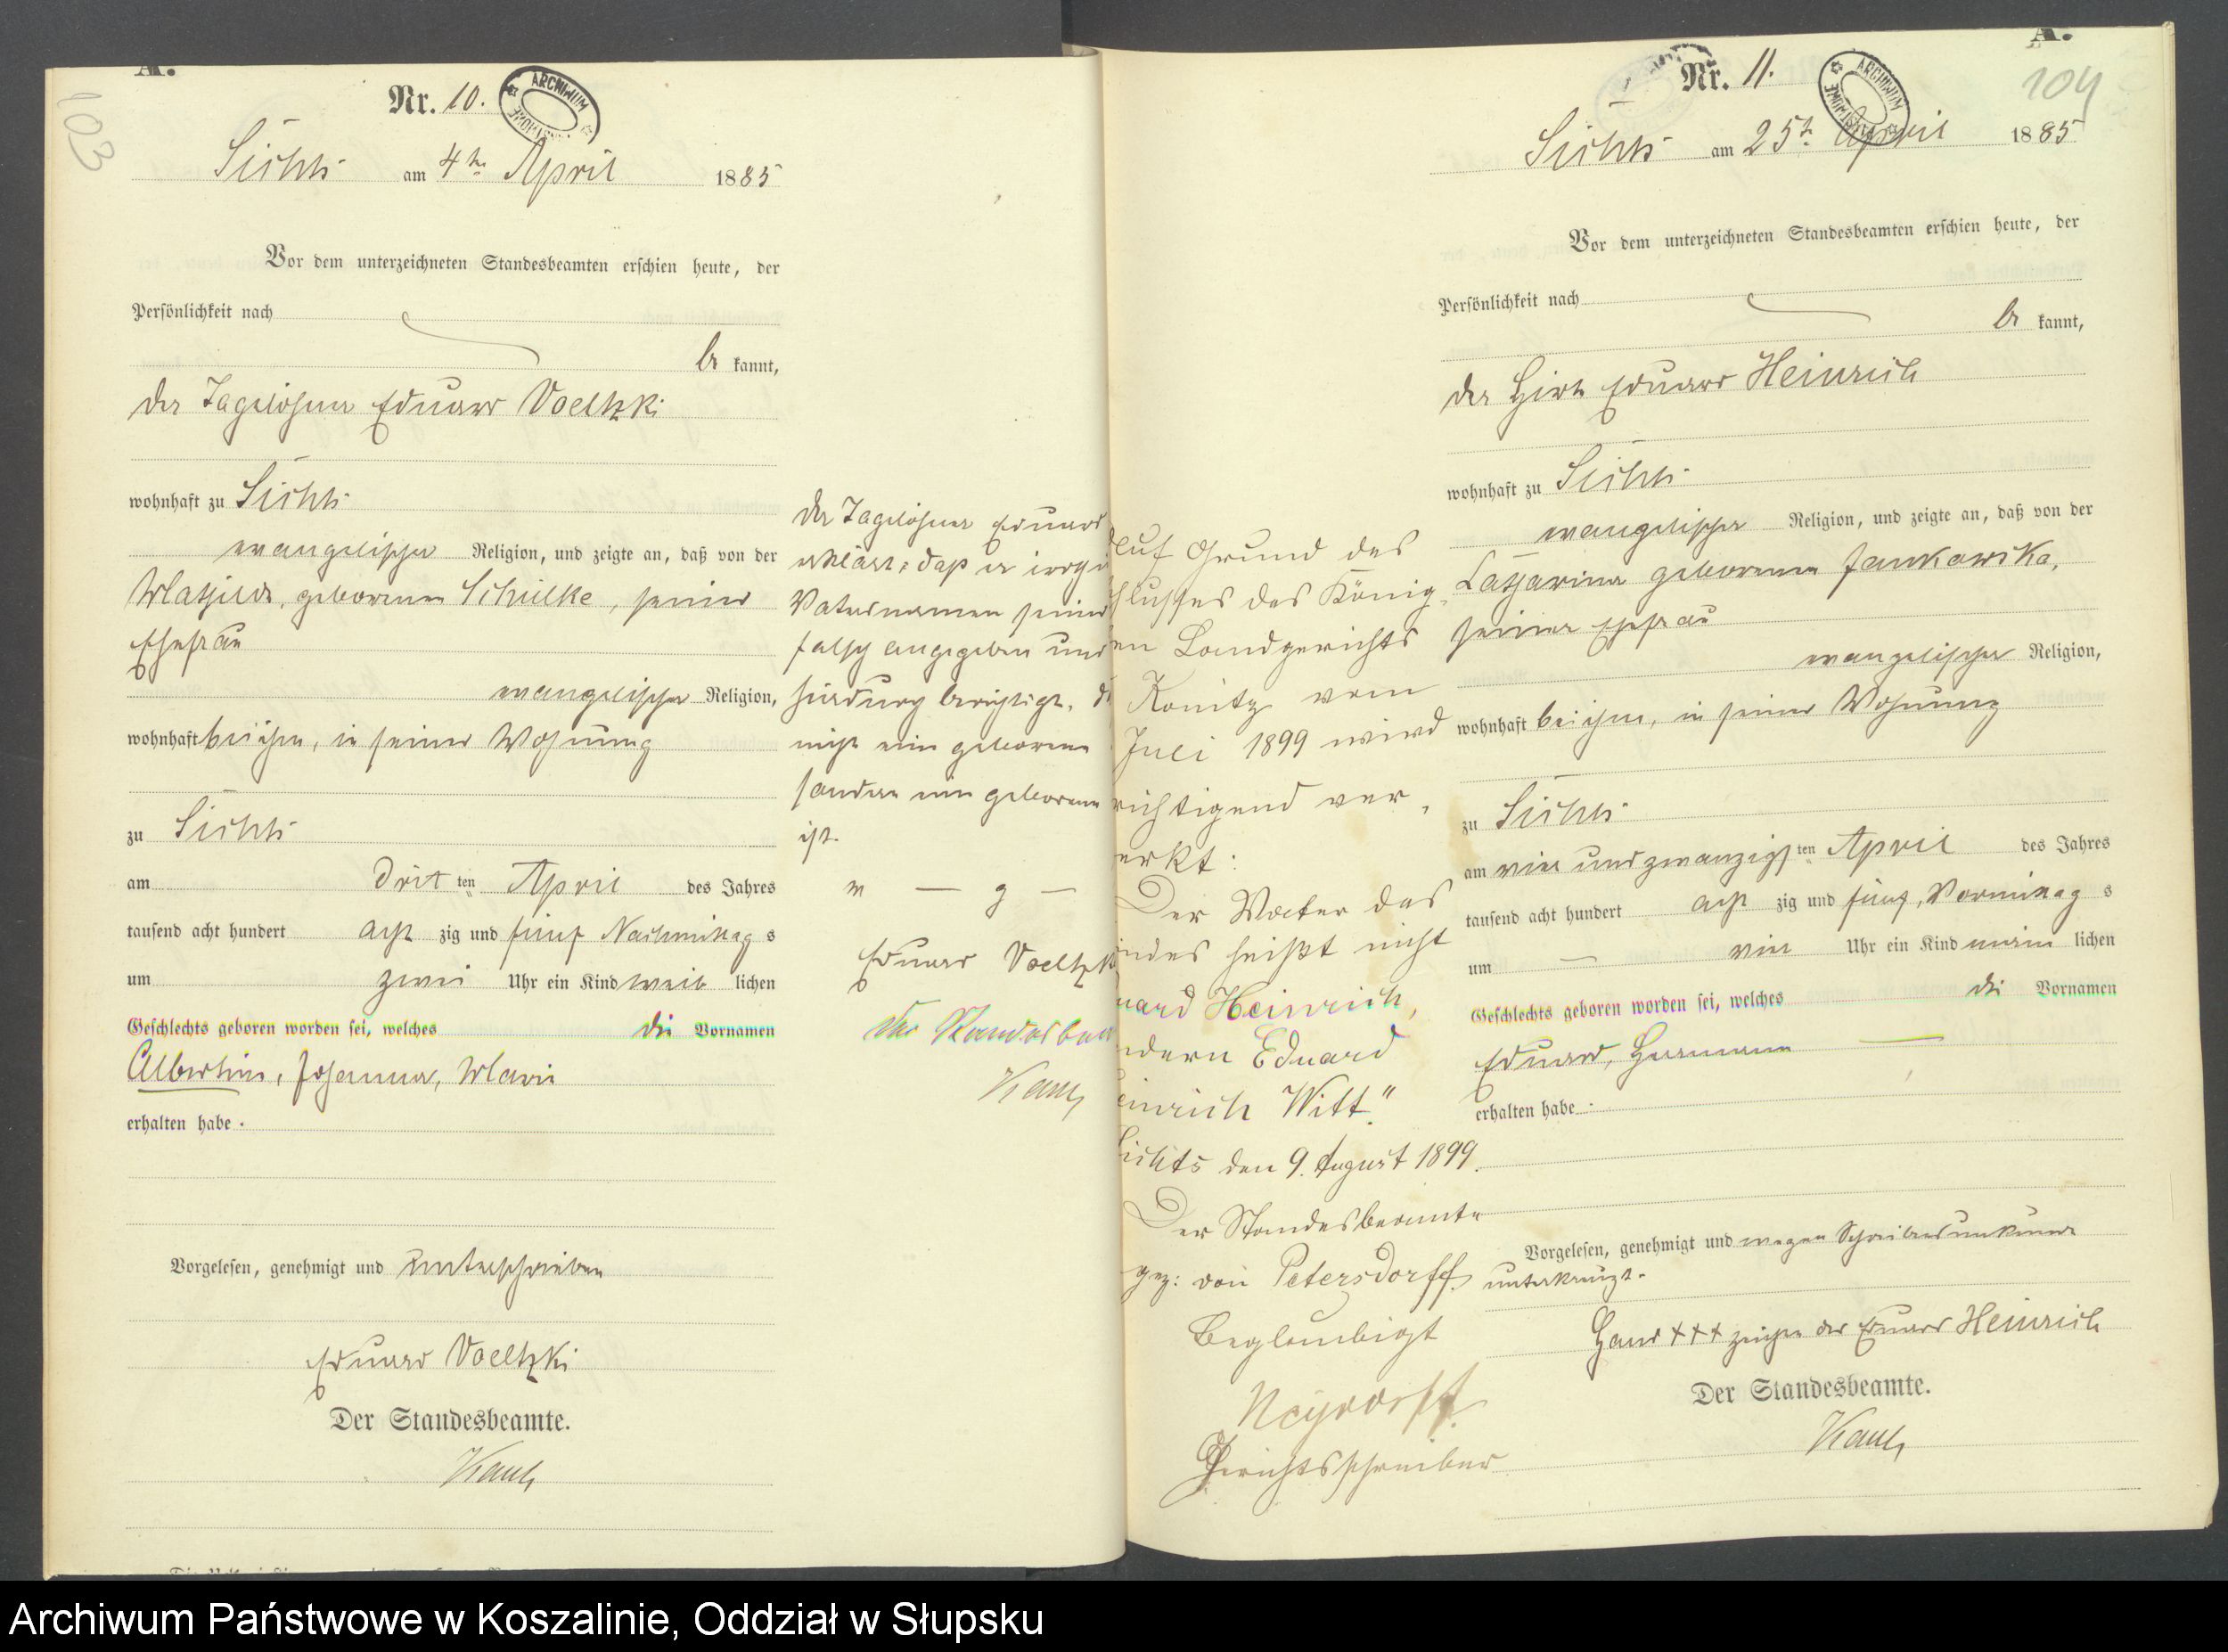 A.
103
Nr. 10.
ARCHIWUM
Sichts am 4ten April 1885
Vor dem unterzeichneten Standesbeamten erschien heute, der
Persönlichkeit nach
be kannt,
der Tagelöhner Eduard Voeltzki
wohnhaft zu Sichts
evangelischer Religion, und zeigte an, daß von der
Mathilde, geborenen Schülke, seiner
Ehefrau
evangelischer Religion,
wohnhaft bei ihm, in seiner Wohnung
zu Sichts
am drit ten April des Jahres
tausend acht hundert acht zig und fünf Nachmittag s
um zwei Uhr ein Kind weib lichen
Geschlechts geboren worden sei, welches die Vornamen
Albertine, Johanna, Marie
erhalten habe.
Vorgelesen, genehmigt und unterschrieben
Eduard Voeltzki
Der Standesbeamte.
Der Tagelöhner Eduard
erklärt, daß er
Vaternamen seiner
falsch angegeben und
hierdurch berichtigt,
nicht eine geborene
sondern eine geborene
ist.
v — g —
Eduard Voeltzk
Der Standesbea
A.
104
Nr. 11.
ARCHIWUM
Sichts am 25ten April 1885
Vor dem unterzeichneten Standesbeamten erschien heute, der
Persönlichkeit nach
be kannt,
der Hirt Eduard Heinrich
wohnhaft zu Sichts
evangelischer Religion, und zeigte an, daß von der
Catharina geborenen Jankowska,
seiner Ehefrau
evangelischer Religion,
wohnhaft bei ihm, in seiner Wohnung
zu Sichts
am vier und zwanzigs ten April des Jahres
tausend acht hundert acht zig und fünf, Vormittag s
um — vier Uhr ein Kind männ lichen
Geschlechts geboren worden sei, welches die Vornamen
Eduard, Hermann —
erhalten habe.
Vorgelesen, genehmigt und wegen Schreibensunkunde
unterkreuzt.
Hand +++ zeichen des Eduard Heinrich
Der Standesbeamte.
Auf Grund des
schlusses des König-
en Landgerichts
Konitz vom
Juli 1899 wird
richtigend ver-
erkt:
Der Vater des
indes heißt nicht
uard Heinrich,
ndern Eduard
einrich Witt."
Sichts den 9. August 1899.
Der Standesbeamte
gez: von Petersdorff.
Beglaubigt
Gerichtsschreiber
Archiwum Państwowe w Koszalinie, Oddział w Słupsku